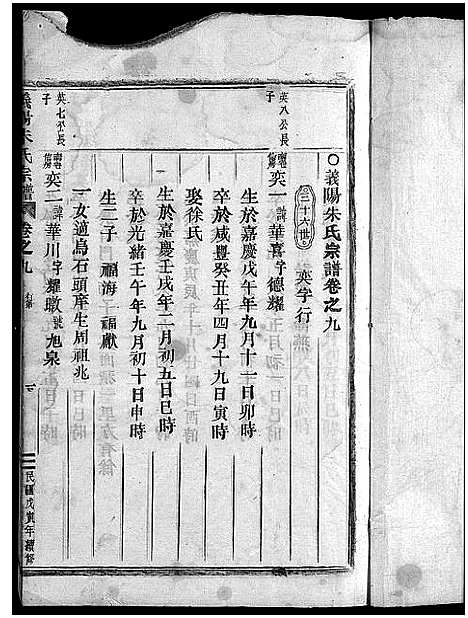 ○義陽朱氏宗譜卷之九
三十六世 奕字行
英八公長子
奕一諱華喜字德耀
生於嘉慶戊午年九月十一日卯時
卒於咸豐癸丑年四月十九日寅時
娶徐氏
生於嘉慶壬戌年二月初五日巳時
卒於光緒壬午年九月初十日申時
生二子 福海 福獻
一女適烏石頭庠生周祖兆
英七公長子
奕二諱華川字耀暾號旭泉
義陽朱氏宗譜 卷之九 一 民國戊寅年續修